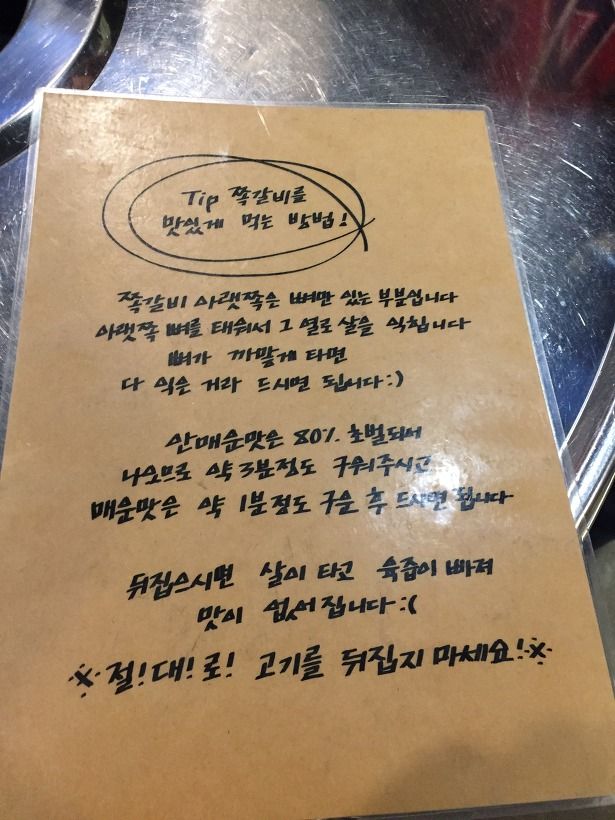 Tip 쪽갈비를
맛있게 먹는 방법!
쪽갈비 아랫쪽은 뼈만 있는 부분입니다
아랫쪽 뼈를 태워서 그 열로 살을 익힙니다
뼈가 까맣게 타면
다 익은 거라 드시면 됩니다:)
안매운맛은 80% 초벌되서
나오므로 약 3분정도 구워주시고
매운맛은 약 1분정도 구운 후 드시면 됩니다
뒤집으시면 살이 타고 육즙이 빠져
맛이 없어집니다:(
※절!대!로! 고기를 뒤집지 마세요!※